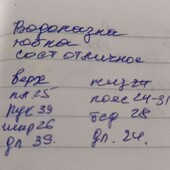 Водолазка
юбка
сост отличное
верх
пл 25
рук 39
шир 26
дл 39.
низ 24
пояс 24-31
бед 28
дл. 24.